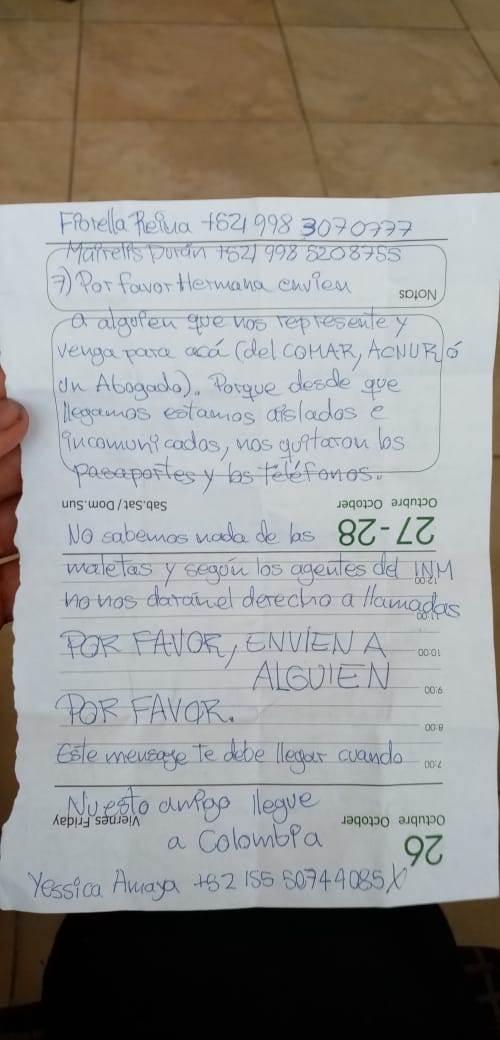 Fiorella Reina +521 998 3070777
Mairelis Durán +521 998 5208755
7) Por favor Hermana envien
Notas
a alguien que nos represente y
venga para acá (del COMAR, ACNUR ó
un Abogado). Porque desde que
llegamos estamos aislados e
incomunicados, nos quitaron los
pasaportes y los teléfonos.
Sab.Sat / Dom.Sun
Octubre October
27-28
No sabemos nada de las
maletas y según los agentes del INM
12:00
no nos daran el derecho a llamadas
11:00
POR FAVOR, ENVIEN A
10:00
ALGUIEN
9:00
POR FAVOR.
8:00
Este mensage te debe llegar cuando
7:00
Nuesto amigo llegue
Viernes Friday
Octubre October
26
a Colombia
Yessica Amaya +52 155 50744085